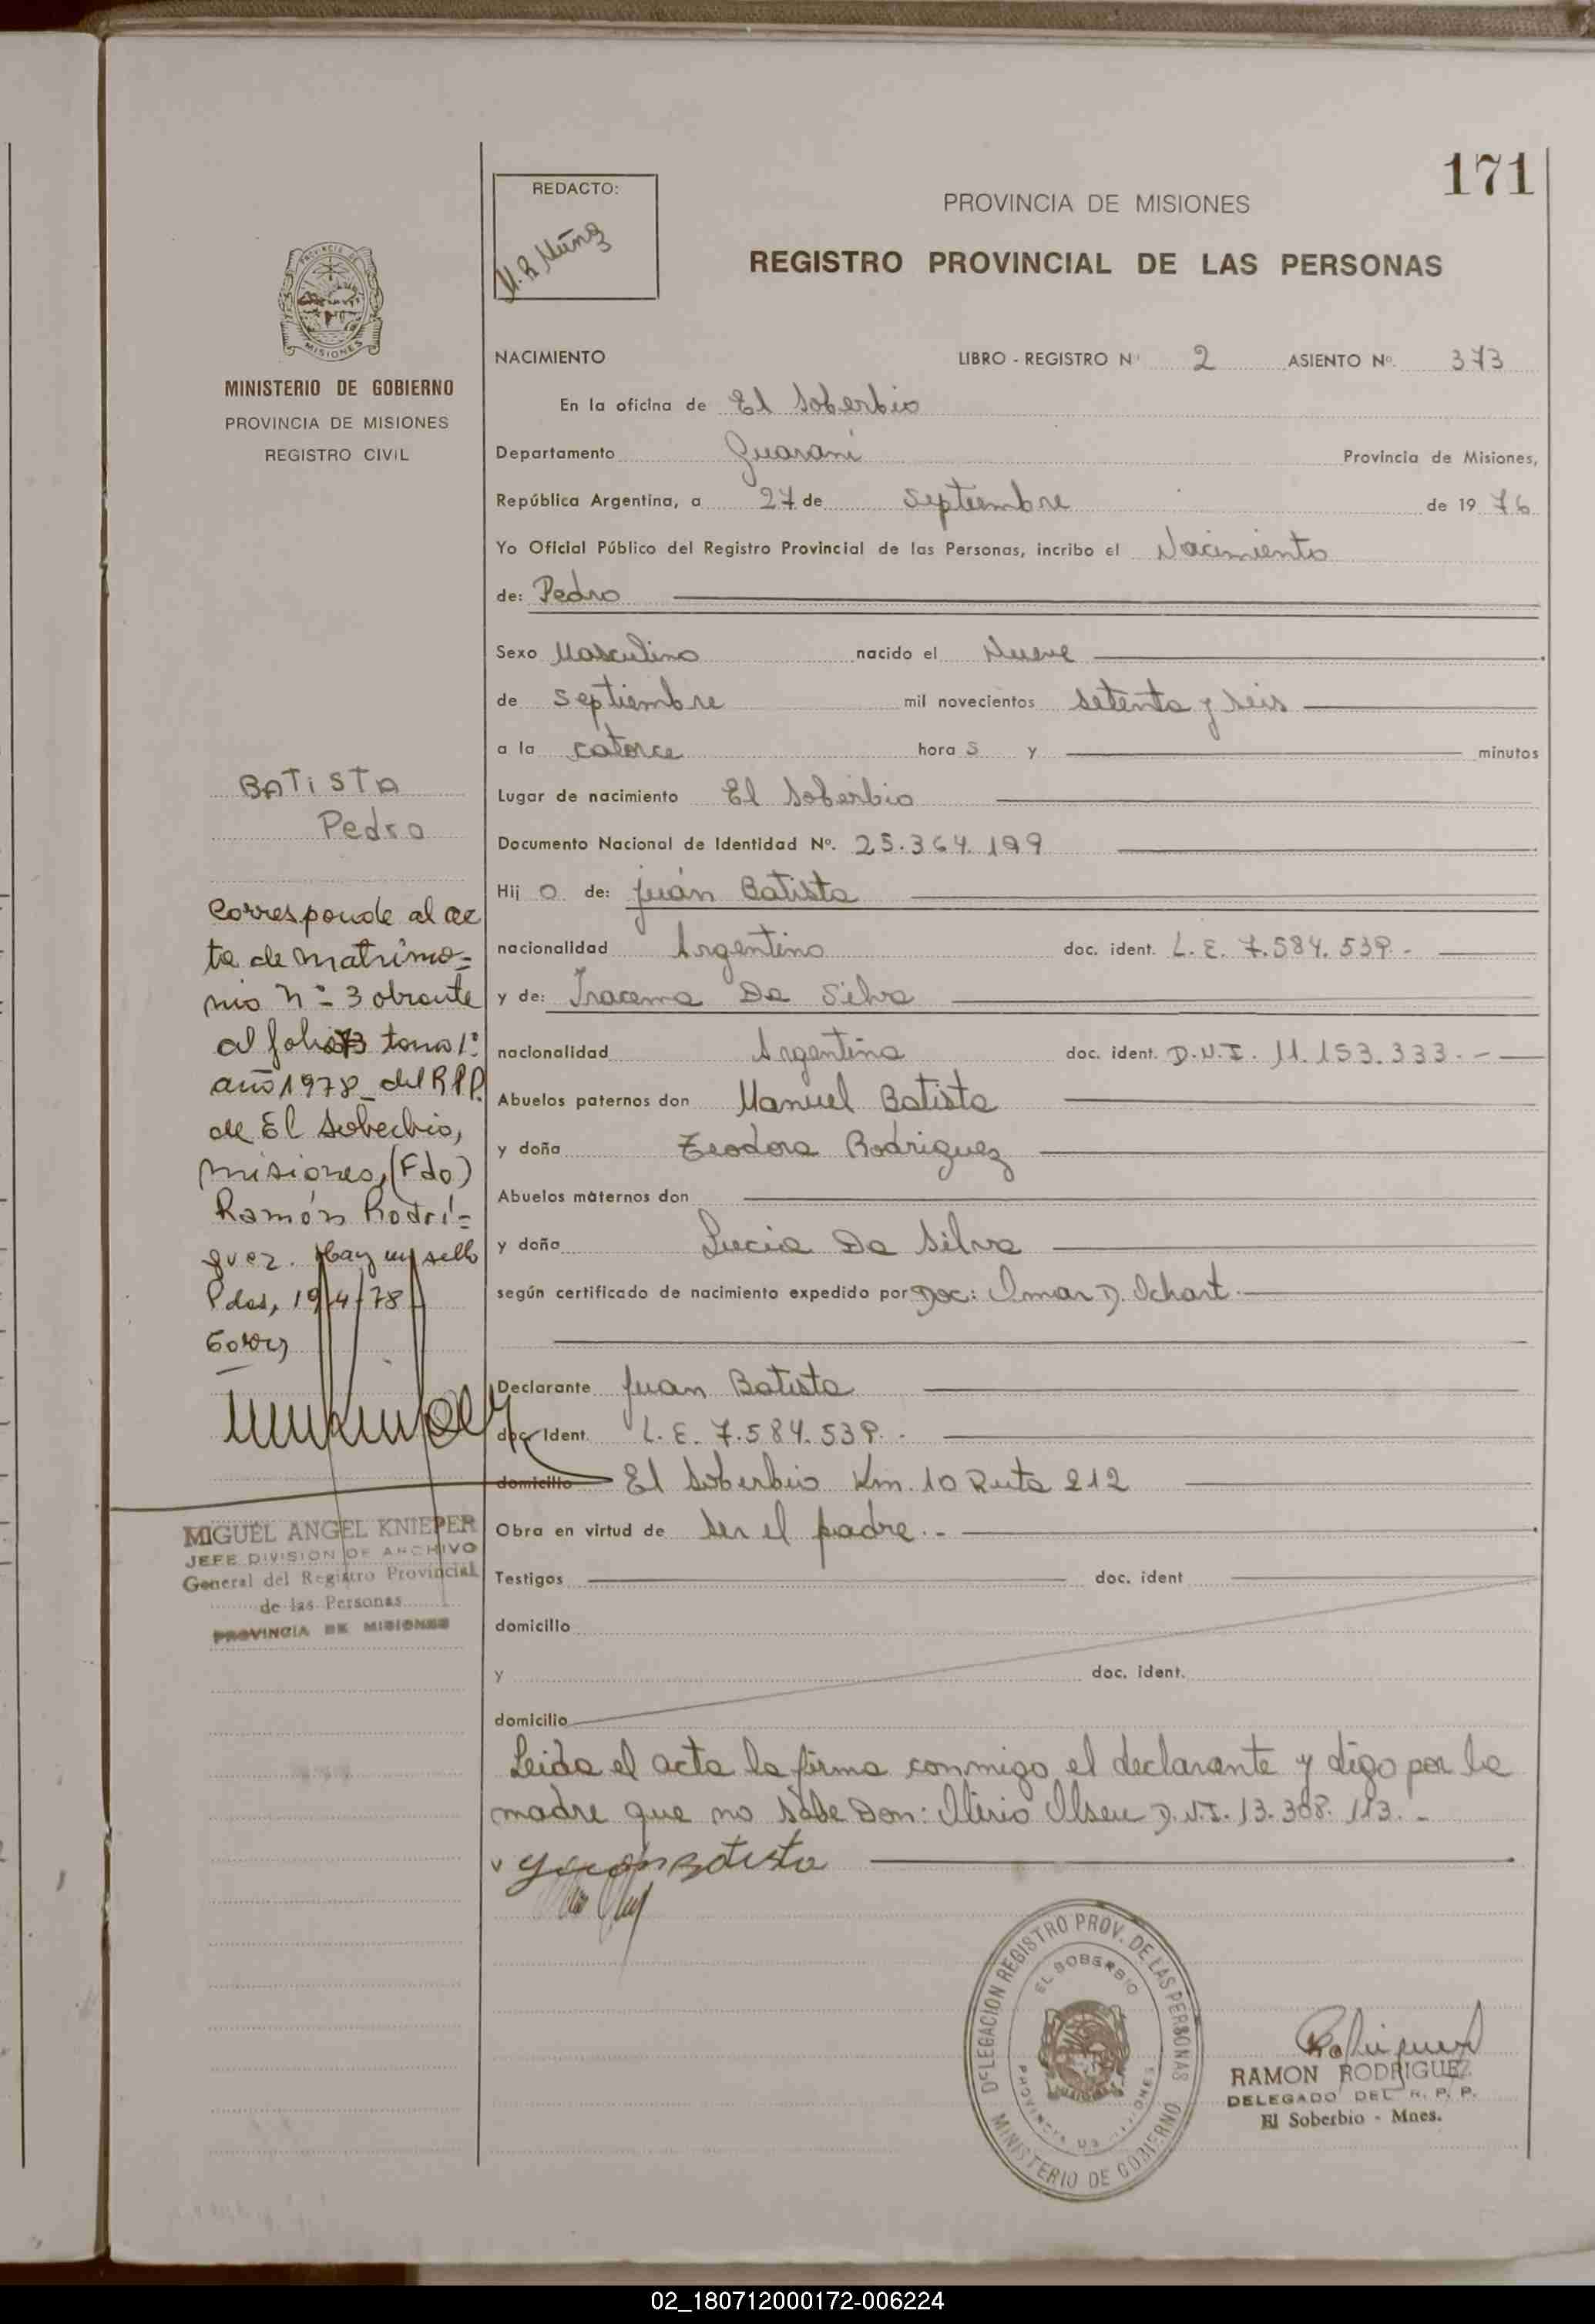 171
REDACTO:
PROVINCIA DE MISIONES
REGISTRO PROVINCIAL DE LAS PERSONAS
MISIONES
MINISTERIO DE GOBIERNO
PROVINCIA DE MISIONES
REGISTRO CIVIL
NACIMIENTO LIBRO - REGISTRO N° 2 ASIENTO N°. 373
En la oficina de El Soberbio
Departamento Guaraní Provincia de Misiones,
República Argentina, a 27 de septiembre de 19 76
Yo Oficial Público del Registro Provincial de las Personas, incribo el Nacimiento
de: Pedro
Sexo Masculino nacido el Nueve
de septiembre mil novecientos setenta y seis
a la catorce hora s y minutos
Lugar de nacimiento El Soberbio
Documento Nacional de Identidad N°. 25.364.199
Hij o de: Juán Batista
nacionalidad Argentino doc. ident. L.E. 7.584.539.-
y de: Iracema Da Silva
nacionalidad Argentina doc. ident. D.N.I. 11.153.333.-
Abuelos paternos don Manuel Batista
y doña Teodora Rodriguez
Abuelos maternos don
y doña Lucia Da Silva
según certificado de nacimiento expedido por Doc: Omar D. Ichart
Declarante Juan Batista
doc. Ident. L.E. 7.584.539.-
domicilio El Soberbio Km. 10 Ruta 212
Obra en virtud de ser el padre.-
Testigos doc. ident
domicilio
y doc. ident.
domicilio
Leida el acta la firma conmigo el declarante y digo por la
madre que no sabe Don: Olirio Olsen D.N.I. 13.308.113.-
Juan Batista
BATiSTA
Pedro
Corresponde al ac
ta de matrimo=
nio n°= 3 obrante
al folio tomo 1°
año 1978 del RPP.
de El Soberbio,
misiones, (Fdo)
Ramón Rodrí=
guez. Hay un sello
Pdas, 19/4/78
MIGUEL ANGEL KNIEPER
JEFE DIVISION DE ARCHIVO
General del Registro Provincial
de las Personas
PROVINCIA DE MISIONES
DELEGACION REGISTRO PROV. DE LAS PERSONAS
EL SOBERBIO
PROVINCIA DE MISIONES
MINISTERIO DE GOBIERNO
RAMON RODRIGUEZ
DELEGADO DEL R. P. P.
El Soberbio - Mnes.
02_180712000172-006224